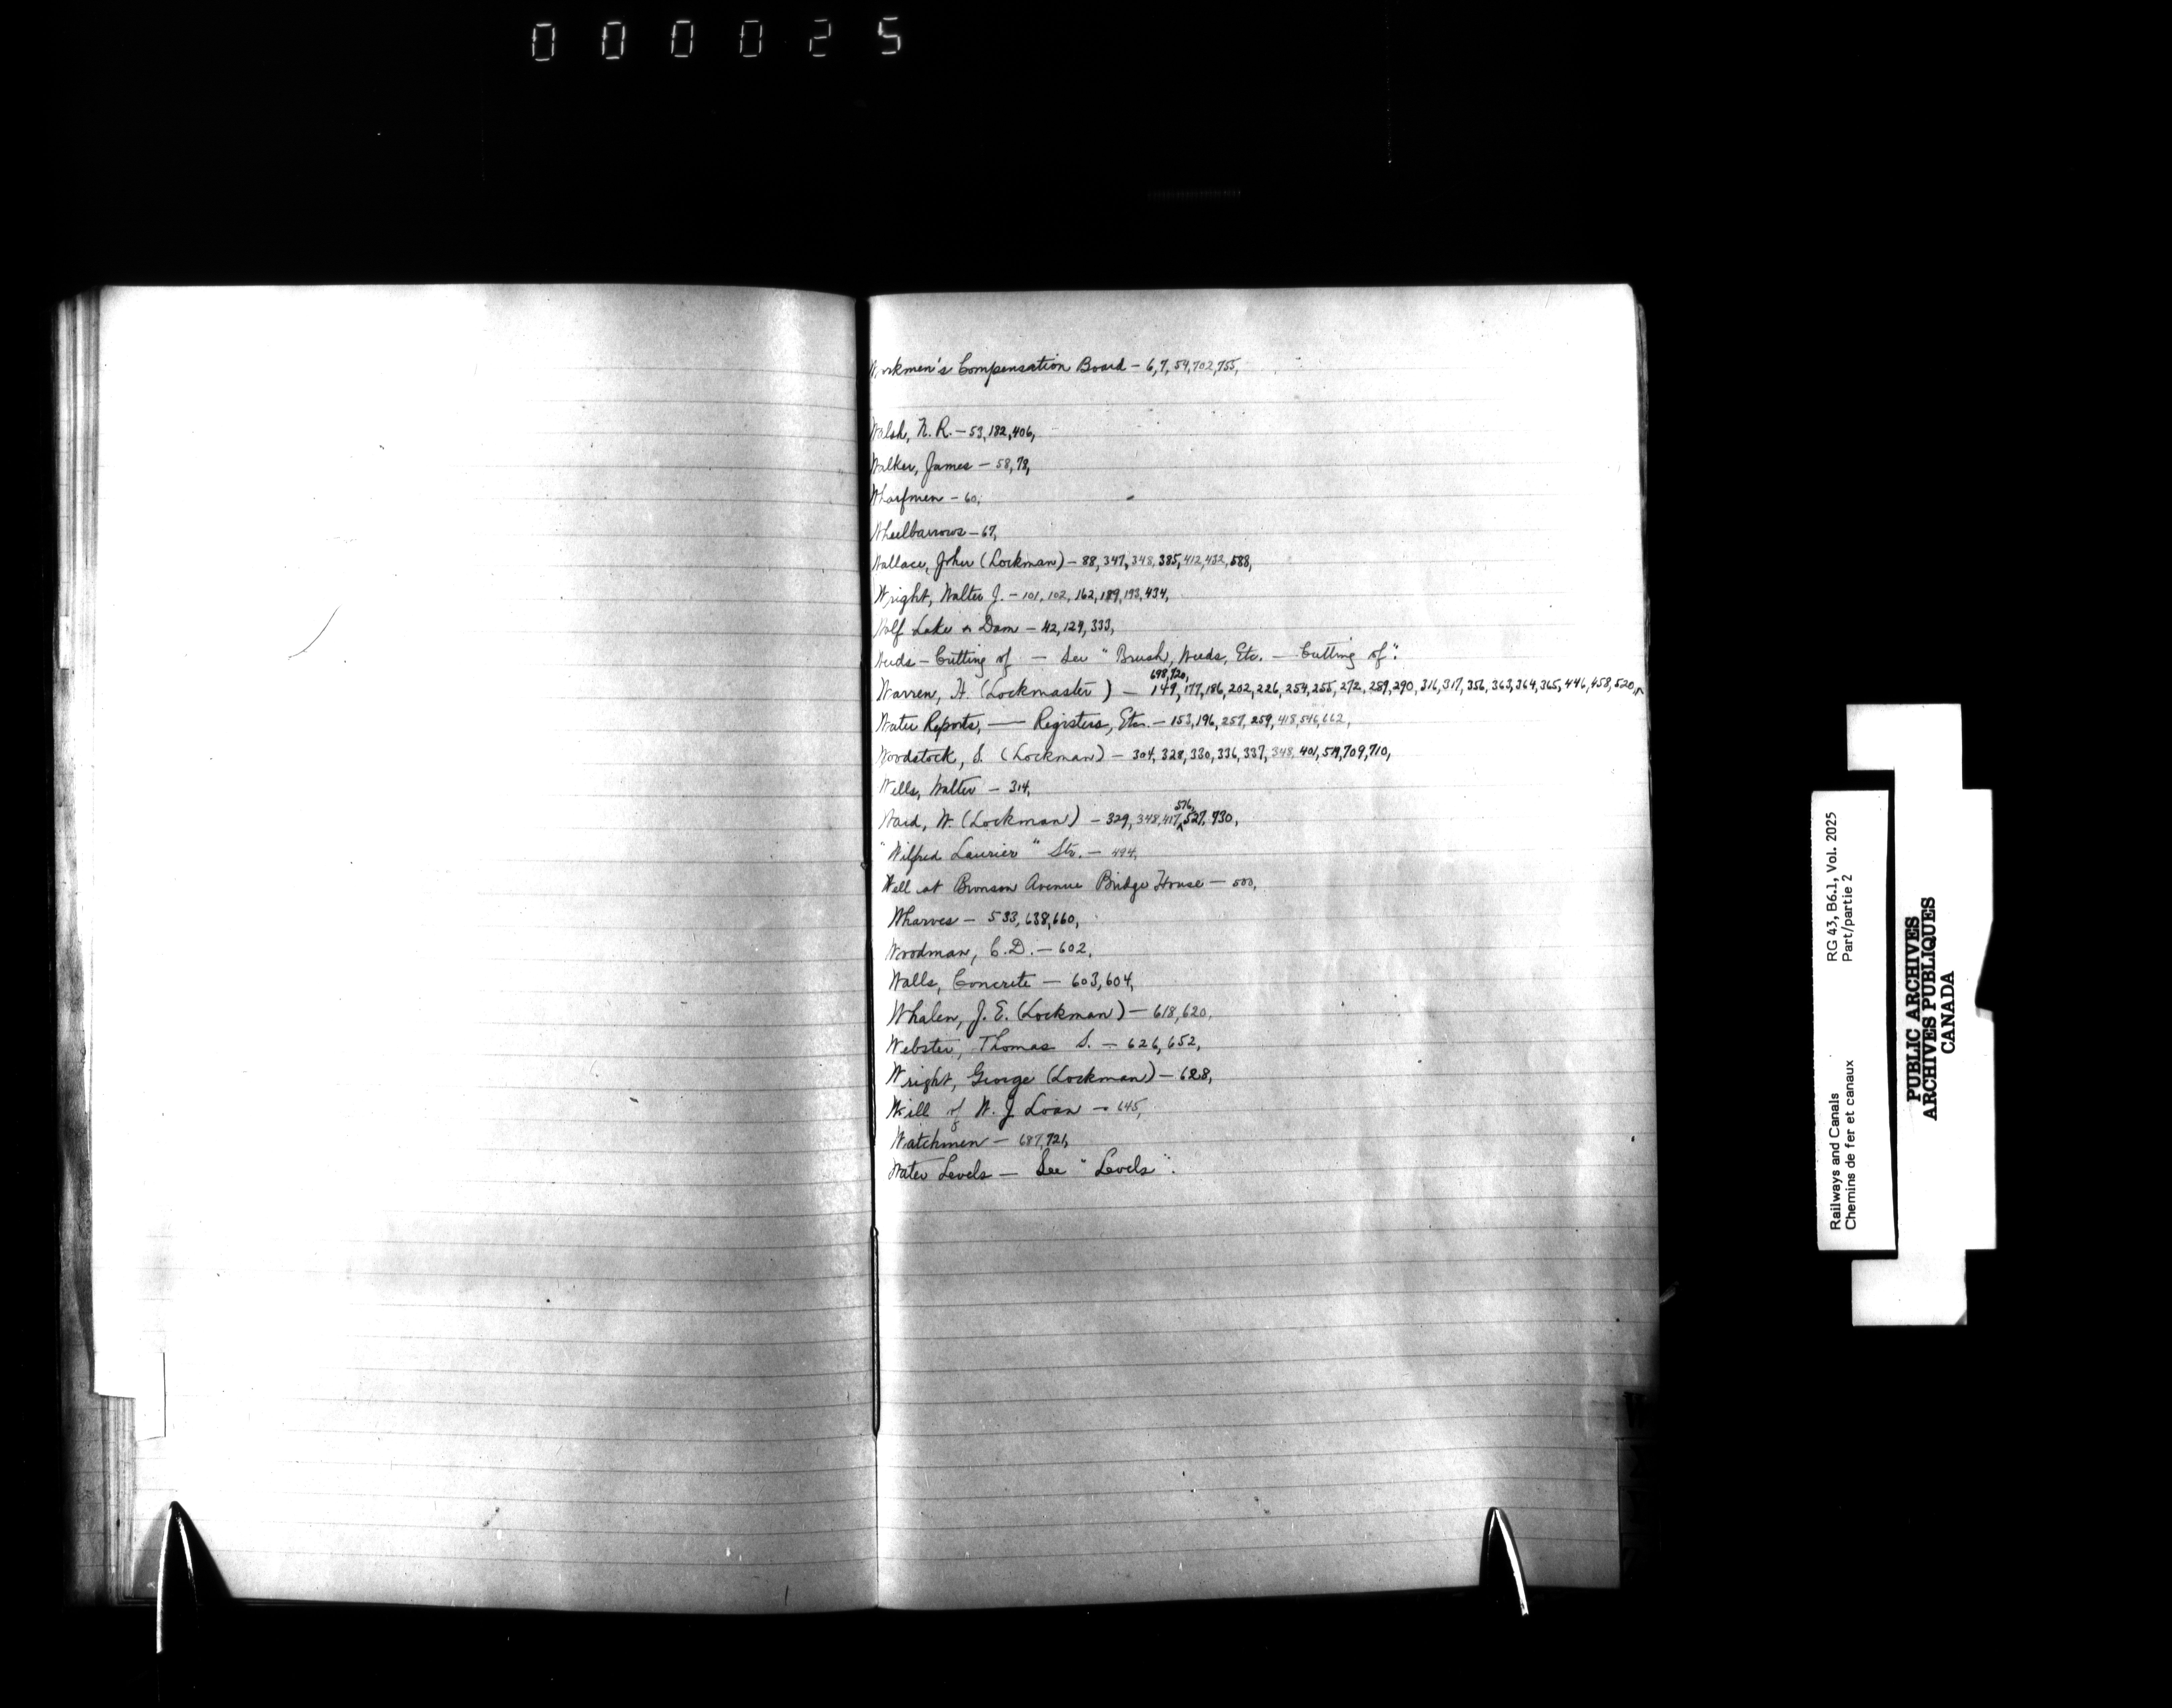 000025
Workmen's Compensation Board - 6, 7, 54, 702, 755,
Walsh, N. R. - 53, 182, 406,
Walker, James - 58, 78,
Wharfmen - 60,
Wheelbarrows - 67,
Wallace, John (Lockman) - 88, 347, 348, 385, 412, 432, 588,
Wright, Walter J. - 101, 102, 162, 189, 193, 434,
Wolf Lake & Dam - 42, 129, 333,
Weeds - Cutting of - See "Brush, Weeds, Etc. - Cutting of".
698, 720,
Warren, H. (Lockmaster) - 149, 177, 186, 202, 226, 254, 255, 272, 289, 290, 316, 317, 356, 363, 364, 365, 446, 458, 520,
Water Reports, — Registers, Etc. - 153, 196, 257, 259, 418, 546, 662,
Woodstock, S. (Lockman) - 304, 328, 330, 336, 337, 348, 401, 519, 709, 710,
Wells, Walter - 314,
516,
Ward, W. (Lockman) - 329, 348, 417, 527, 730,
"Wilfred Laurier" Str. - 494,
Well at Bronson Avenue Bridge House - 500,
Wharves - 533, 638, 660,
Woodman, C. D. - 602,
Walls, Concrete - 603, 604,
Whalen, J. E. (Lockman) - 618, 620,
Webster, Thomas S. - 626, 652,
Wright, George (Lockman) - 628,
Will of W. J. Loan - 645,
Watchmen - 687, 721,
Water Levels - See "Levels".
W
Railways and Canals
Chemins de fer et canaux
RG 43, B6.1, Vol. 2025
Part/partie 2
PUBLIC ARCHIVES
ARCHIVES PUBLIQUES
CANADA